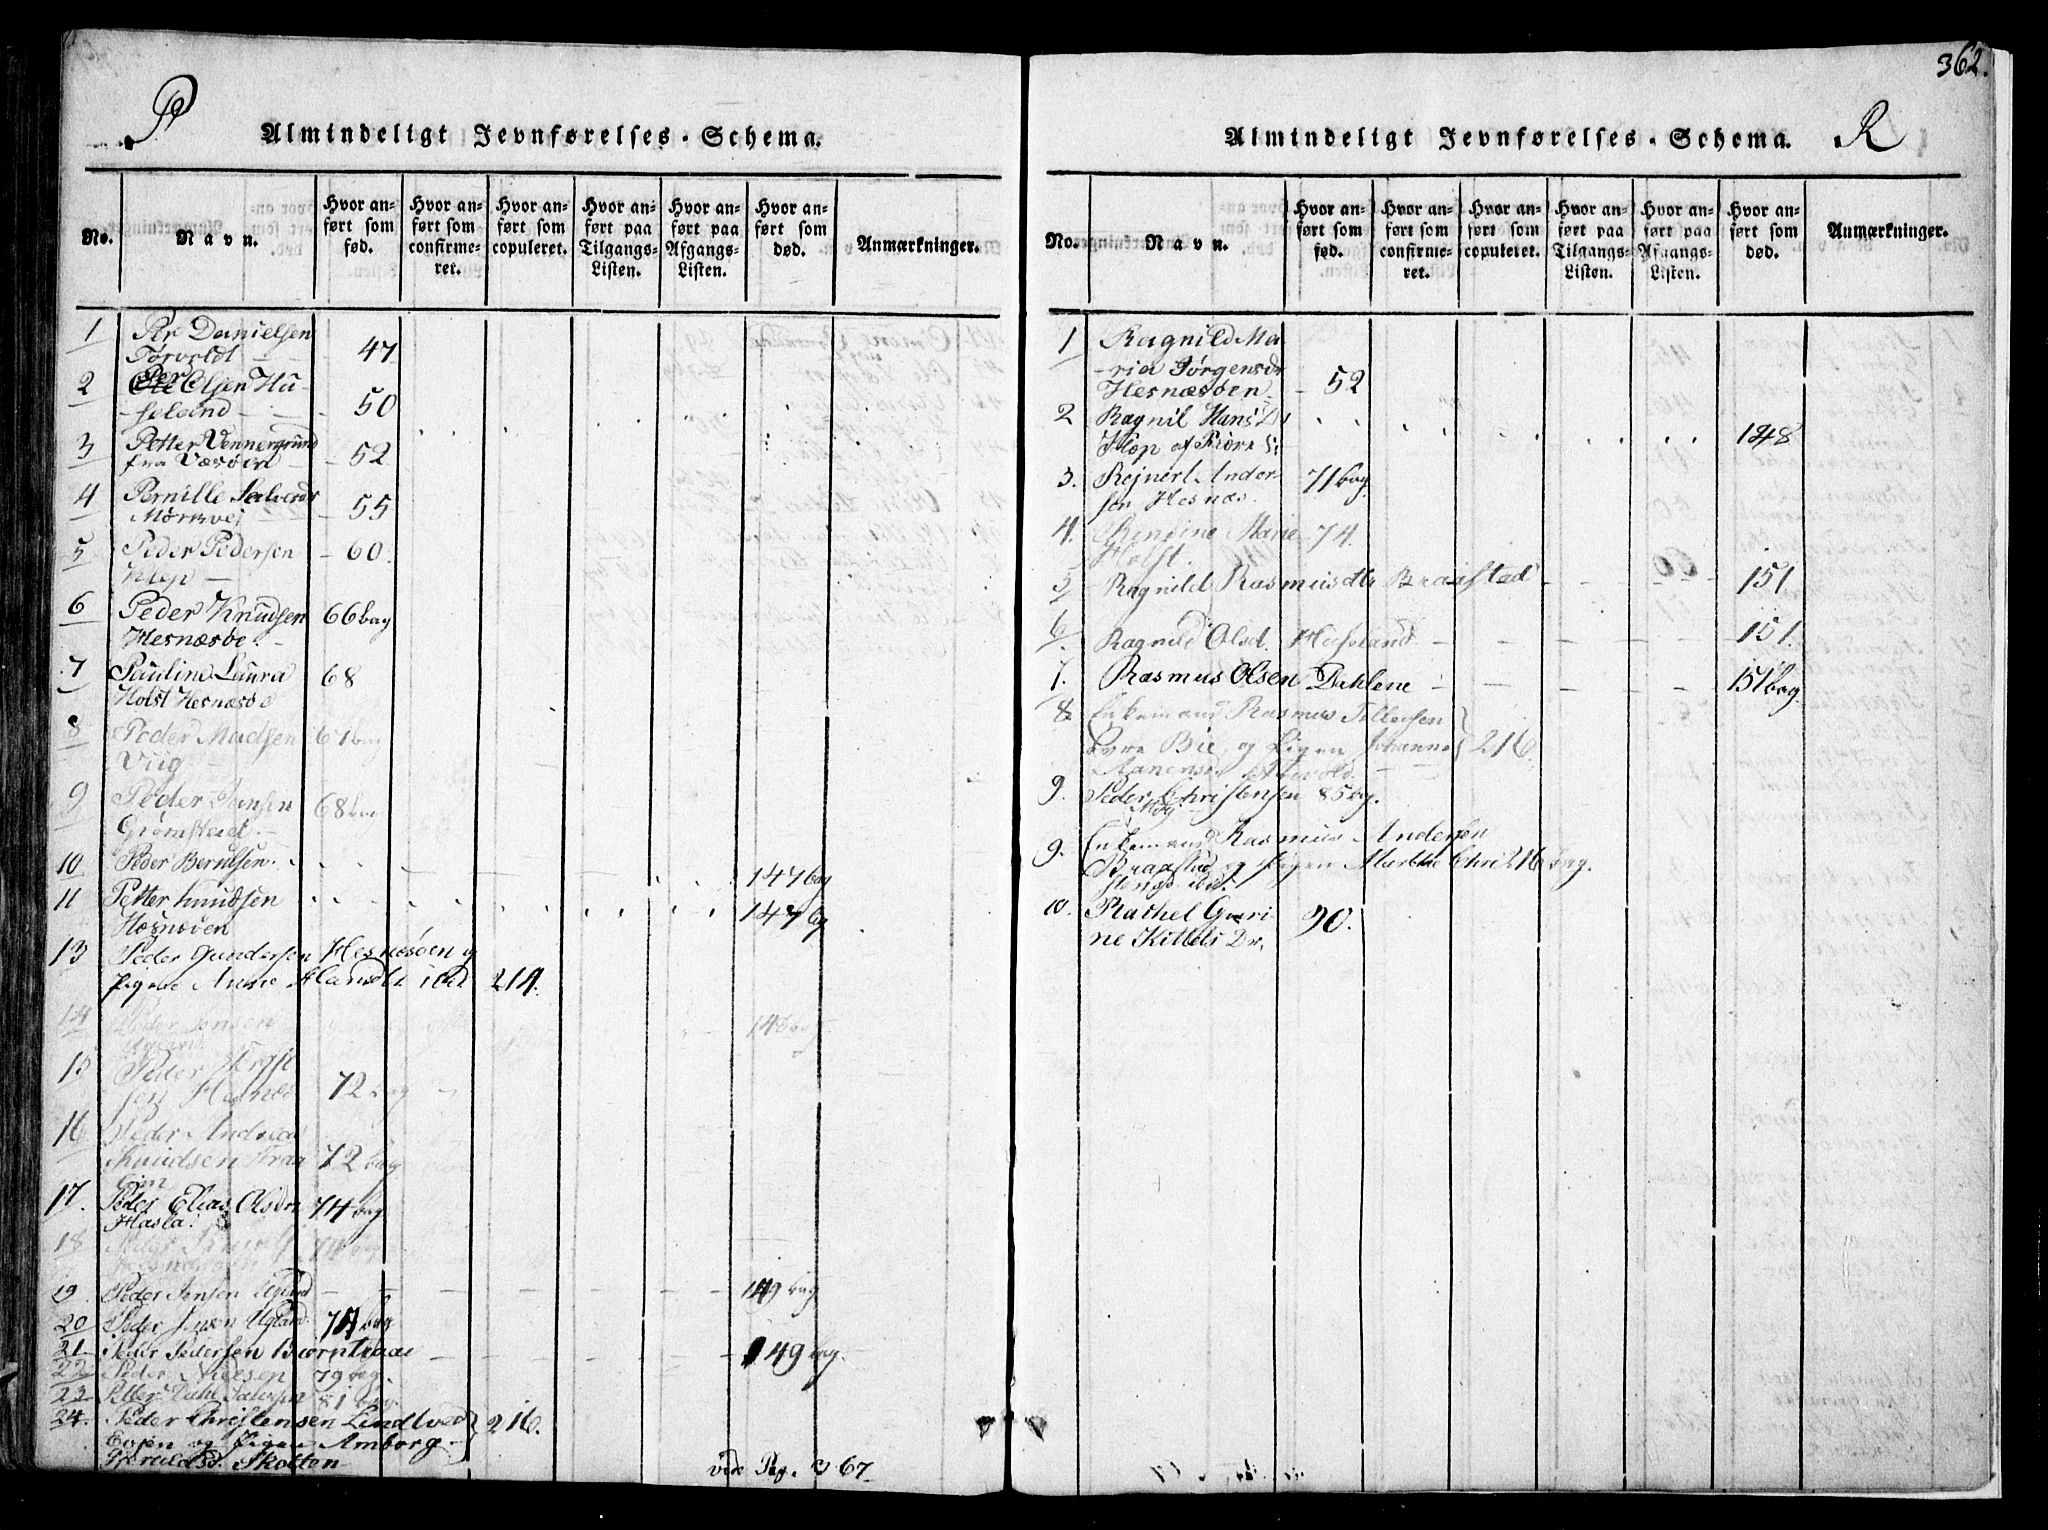 362.
P
Almindeligt Jevnførelses-Schema.
No.
Navn.
Hvor anført som fød.
Hvor anført som confirmeret.
Hvor anført som copuleret.
Hvor anført paa Tilgangs-Listen.
Hvor anført paa Afgangs-Listen.
Hvor anført som død.
Anmærkninger.
1 Per Danielsen
Törvoldt - - 47
2 Per Olsen Hu-
seland - - - 50
3 Petter Vennergrund
fra Væsöen - - 52
4 Pernille
Mörkvej - 55
5 Peder Pedersen - 60.
Klep -
6 Peder Knudsen 66 bag
Hesnæsöe. -
7 Pauline Laura 68
Holst Hesnæsöe
8 Peder Madsen 67 bag
Viig -
9 Peder Jansen 68 bag
Grömstad. -
10 Peder Berulsen. 147 bag
11 Petter Knudsen 147 bg
Hesnöen
13 Peder Gundersen Hesnæsöen og
pigen Anne Hansdtr ibid 214.
14 Peder Jensen 148 bag
15 Peder
sen Hesnæs 72 bag
16 Peder Andreas
Knudsen 72 bag
17. Peder Elias Olsen 74 bag
Hasla.
18 Peder 74 bag
19. Peder Jensen Ugland - - - - - 149 bag
20 Peder Jensen Ugland 74 bag
21. Peder Pedersen Biørntraae - - - - 149 bag.
22 Peder Nielsen 79 bag.
23 Petter Dahl 81 bag.
24. Peder Christensen Lindtved } 216.
pigen Amborg
Skolten
vide Pag. 367.
Almindeligt Jevnførelses-Schema.
R
No.
Navn.
Hvor anført som fød.
Hvor anført som confirmeret.
Hvor anført som copuleret.
Hvor anført paa Tilgangs-Listen.
Hvor anført paa Afgangs-Listen.
Hvor anført som død.
Anmærkninger.
1 Ragnild Ma-
ria Jørgensdr
Hesnæsöen - 52
2 Ragnil Hans Dr
Klep af Fiöre 148
3. Rejnert Ander- 71 bag
sen Hesnæs.
4. Marie 74.
Holst.
5 Ragnild Rasmusdtr Braastad - - - 151
6. Ragnild Olsd. Huseland - - - 151.
7. Rasmus Olsen Dahlene - - - 151 bag.
8 Enkemand Rasmus Tellefsen }
Bie, og Pigen Johanne } 216.
Aanensd
9. Peder Christensen 85 bag.
Moy
9. Enkemand Rasmus Andersen
Braastad og Pigen Marthe Chri 216 bag.
stensd. ibid.
10. Rachel Guri- 90.
ne Kittels Dr.